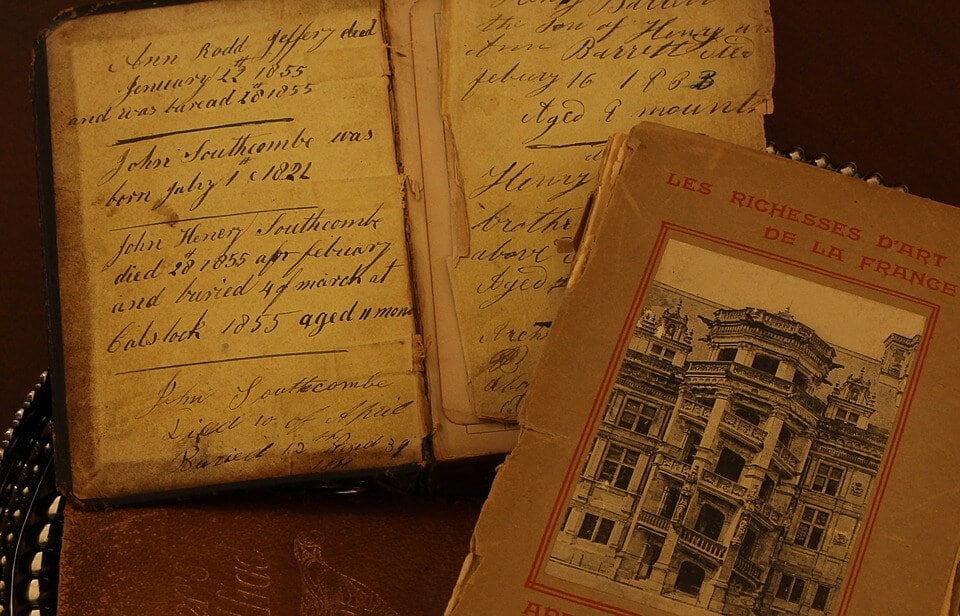 Ann Rodd Jeffery died
Jenuary 22th 1855
and was buread 28th 1855
John Southcombe was
born july 1st 1821
John Henery Southcombe
died 28th 1855 apr febuary
and buried 4 of march at
1855 aged 11 mon
John Southcombe
Died 10 of April
Buried 12
Henry Barrett
the son of Henry an
Ann Barrett died
febury 16 1883
Aged 9 mounth
Henry
brothr
above
Aged
LES RICHESSES D'ART
DE LA FRANCE